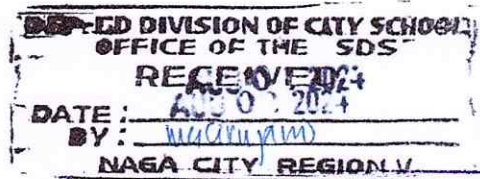 DEP-ED DIVISION OF CITY SCHOOLS
OFFICE OF THE SDS
RECEIVED
DATE: AUG 2024
BY:
NAGA CITY REGION V